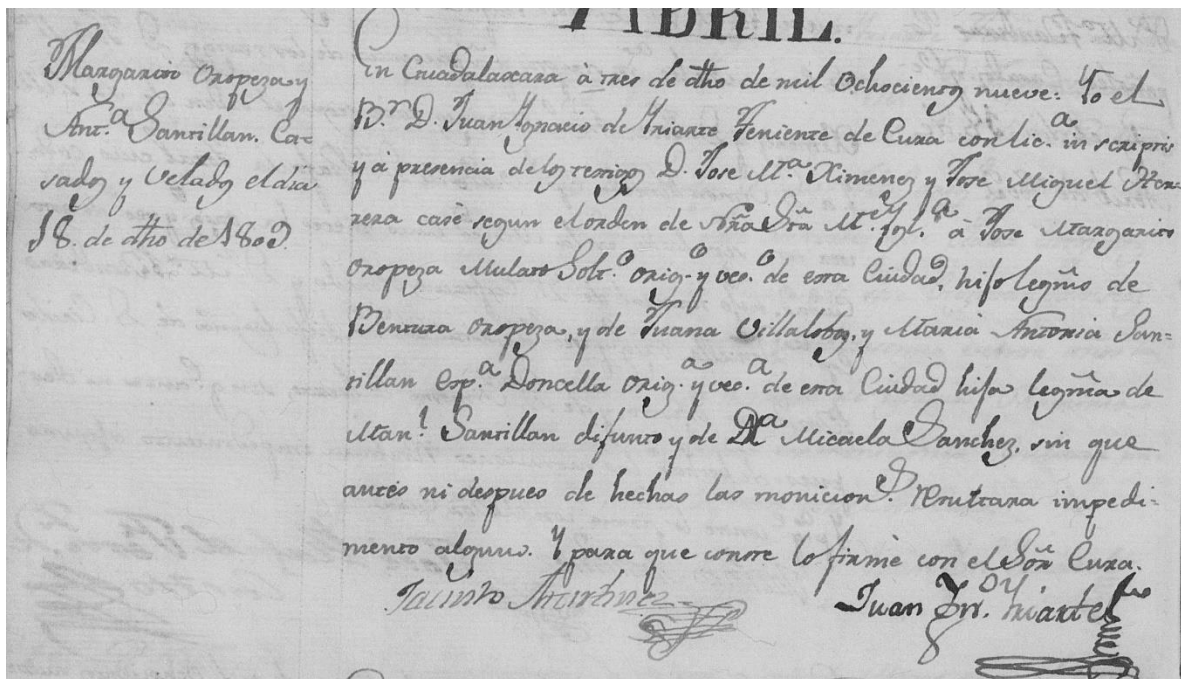 ABRIL.
Margarito Oropeza y
Ant.ª Santillan. Ca-
sados y Velados el dia
18. de dho de 1809.
En Guadalaxara á tres de dho de mil Ochocientos nueve: Yo el
B.r D. Juan Ygnacio de Yriarte Teniente de Cura con lic.ª in scriptis
y á presencia de los testigos D. Jose M.ª Ximenez y Jose Miguel Her-
rera casè segun el orden de Nrã Srã M.e Ygl.ª à Jose Margarito
Oropeza Mulato Solt.º orig.º y vec.º de esta Ciudad, hijo legmõ de
Bentura Oropeza, y de Juana Villalobos, y Maria Antonia San-
tillan Esp.ª Doncella orig.ª y vec.ª de esta Ciudad hija legmã de
Man.l Santillan difunto y de D.ª Micaela Sanchez, sin que
antes ni despues de hechas las monicion.s resultara impedi-
mento alguno. Y para que conste lo firmè con el Sõr Cura.
Jacinto Martinez
Juan Ign.º Yriarte